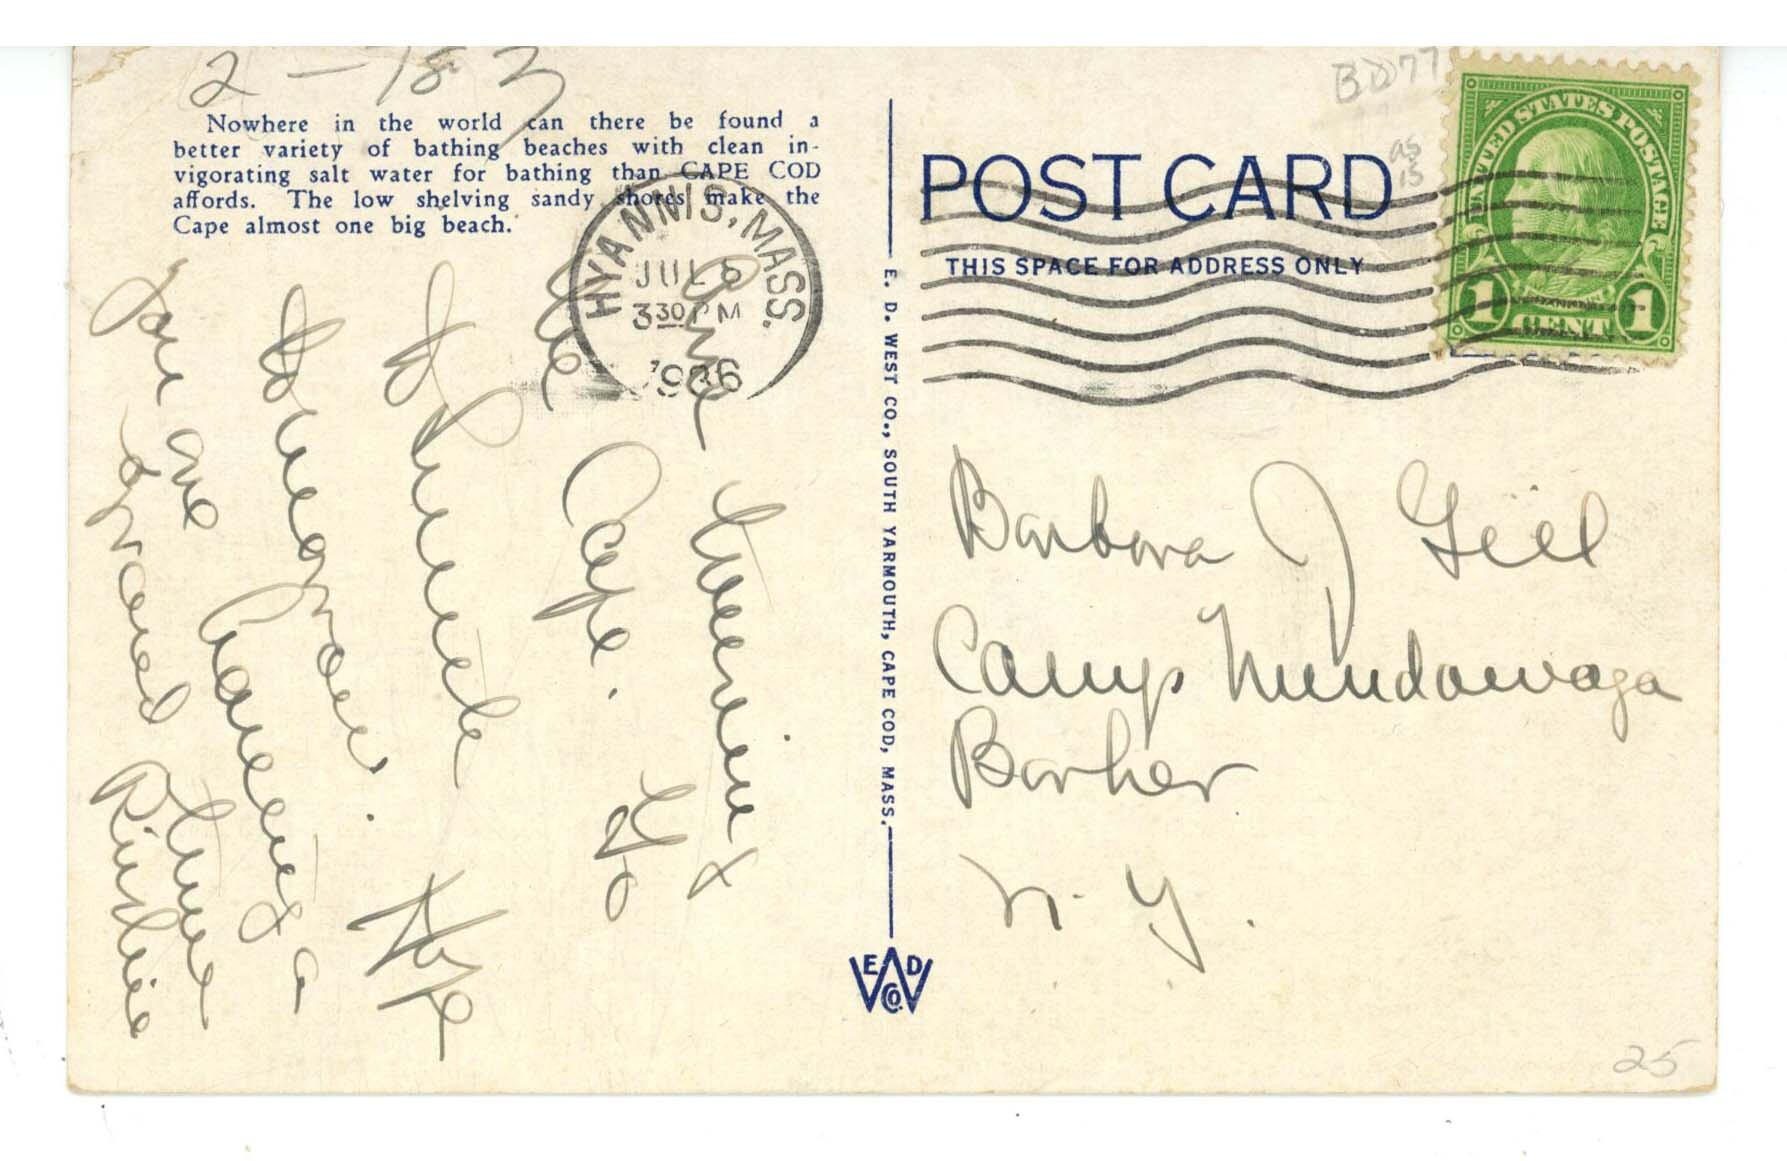 2-183
Nowhere in the world can there be found a
better variety of bathing beaches with clean in-
vigorating salt water for bathing than CAPE COD
affords. The low shelving sandy shores make the
Cape almost one big beach.
HYANNIS, MASS.
JUL 6
3 30 PM
1936
Am
the Cape. Go
thru
Hope
you are having a
grand time
E. D. WEST CO., SOUTH YARMOUTH, CAPE COD, MASS.
E D
W Co
POST CARD
THIS SPACE FOR ADDRESS ONLY
BD77
as
is
UNITED STATES POSTAGE
1 CENT 1
Barbara J Gill
Camp Nundawaga
Barker
N. Y.
25